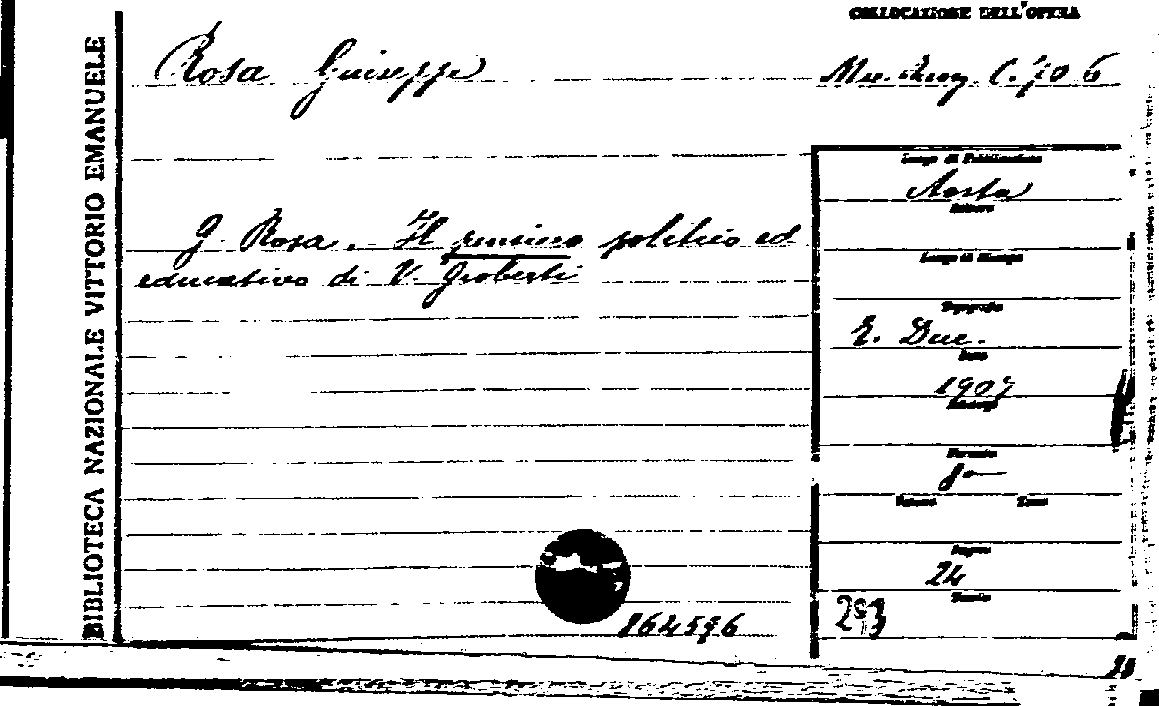 COLLOCAZIONE DELL'OPERA
BIBLIOTECA NAZIONALE VITTORIO EMANUELE
Rosa Giuseppe
C. 70 6
Luogo di Pubblicazione
Aosta
Editore
G. Rosa. Il pensiero politico ed
educativo di V. Gioberti
Luogo di Stampa
Tipografia
E. Duc.
Data
1907
Formato
8º
Volume Tomo
Pagine
24
Tavole
293
164596